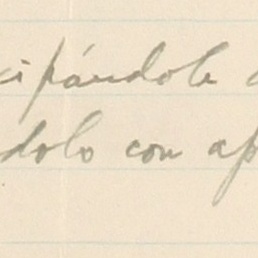 cipándole
dolo con ap